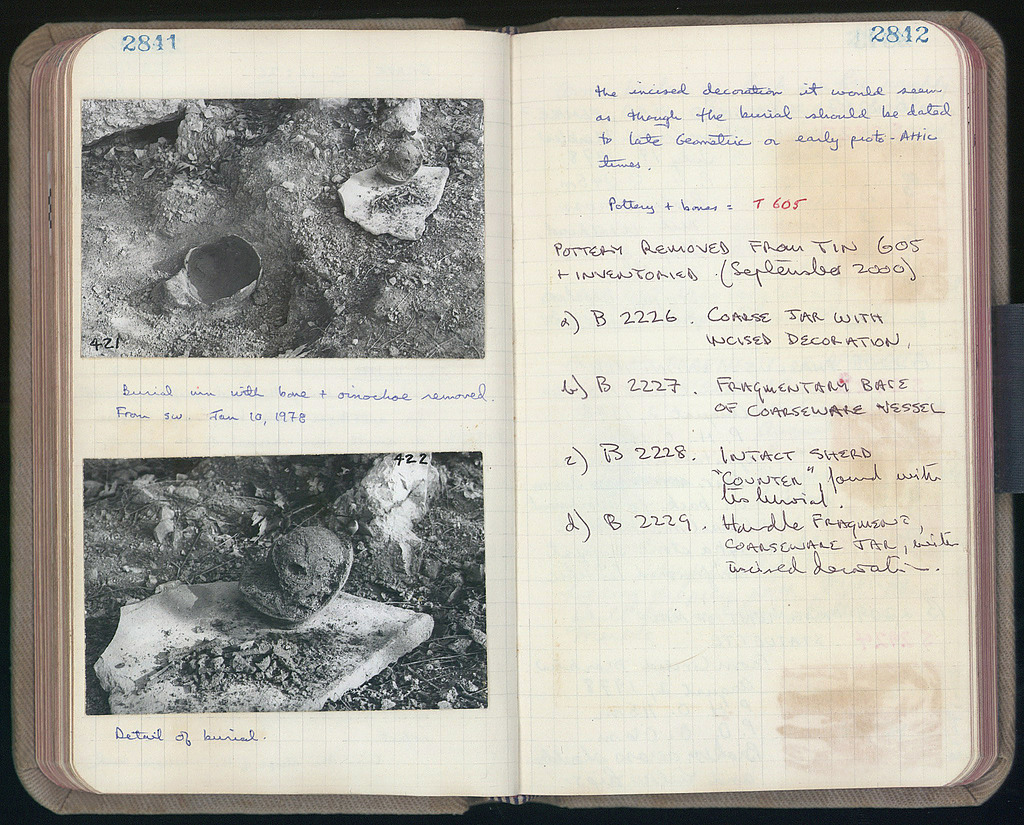 2841
421
Burial urn with bone + oinochoe removed.
From sw. Jan 10, 1978
422
Detail of burial.
2842
the incised decoration it would seem
as though the burial should be dated
to late Geometric or early proto-Attic
times.
Pottery + bones = T 605
POTTERY REMOVED FROM TIN 605
+ INVENTORIED (September 2000)
a) B 2226. COARSE JAR WITH
INCISED DECORATION,
b) B 2227. FRAGMENTARY BASE
OF COARSEWARE VESSEL
c) B 2228. INTACT SHERD
"COUNTER" found with
this burial.
d) B 2229. Handle FRAGMENT,
COARSEWARE JAR, with
incised decoration.